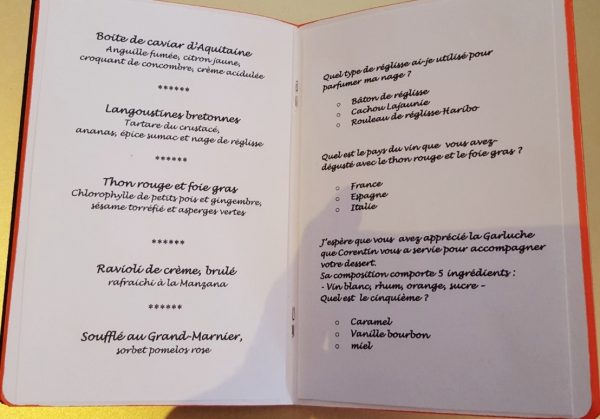 Boite de caviar d'Aquitaine
Anguille fumée, citron jaune,
croquant de concombre, crème acidulée
******
Langoustines bretonnes
Tartare du crustacé,
ananas, épice sumac et nage de réglisse
******
Thon rouge et foie gras
Chlorophylle de petits pois et gingembre,
sésame torréfié et asperges vertes
******
Ravioli de crème, brulé
rafraichi à la Manzana
******
Soufflé au Grand-Marnier,
sorbet pomelos rose
Quel type de réglisse ai-je utilisé pour
parfumer ma nage ?
o Bâton de réglisse
o Cachou Lajaunie
o Rouleau de réglisse Haribo
Quel est le pays du vin que vous avez
dégusté avec le thon rouge et le foie gras ?
o France
o Espagne
o Italie
J'espère que vous avez apprécié la Garluche
que Corentin vous a servie pour accompagner
votre dessert.
Sa composition comporte 5 ingrédients :
- Vin blanc, rhum, orange, sucre –
Quel est le cinquième ?
o Caramel
o Vanille bourbon
o miel